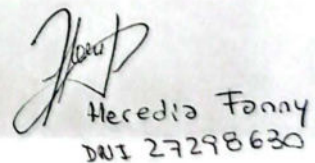 Heredia Fanny
DNI 27298630